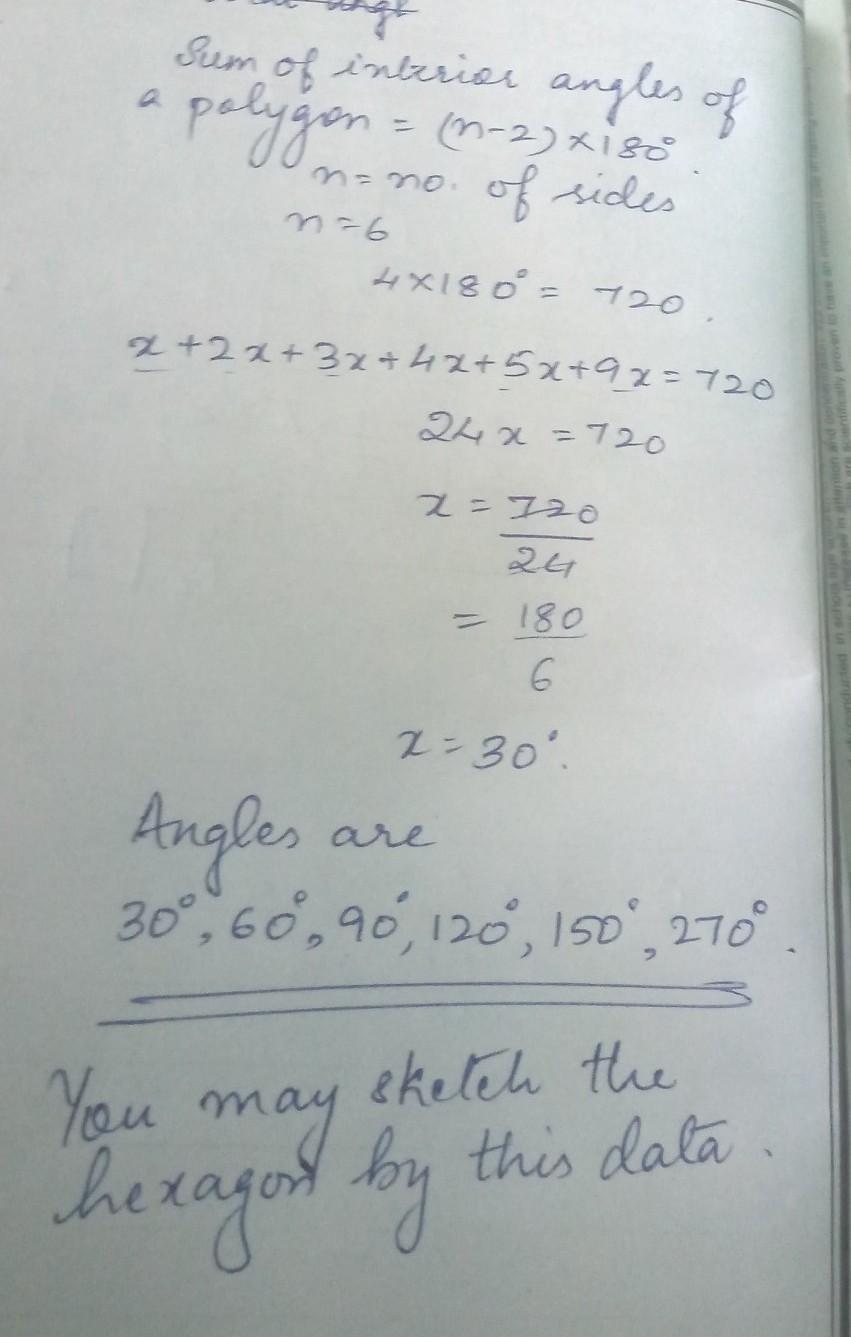 Sum of interior angles of
a polygon = (n-2)×180°.
n = no. of sides
n = 6
4×180° = 720.
x+2x+3x+4x+5x+9x=720
24x = 720
x = 720/24
= 180/6
x = 30°.
Angles are
30°, 60°, 90°, 120°, 150°, 270°.
You may sketch the
hexagon by this data.